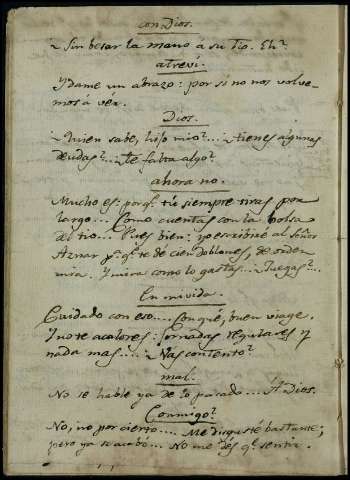 con Dios.
Sin besar la mano á su tio. Eh?
atreví.
Ydame un abrazo: por si no nos volve-
mos á vér.
Dios.
Quien sabe, hijo mio?... tienes algunas
deudas?... te falta algo?
ahora no.
Mucho es: porq.e tú siempre tiras por
largo.... Como cuentas con la bolsa
del tio.... Pues bien: yo escribiré al Señor
Aznar p.a q.e te dé cien doblones, de orden
mia. Y mira como lo gastas... Juegas?...
En mi vida.
Cuidado con eso.... Conqué, buen viage.
Y no te acalores: jornadas regulares y
nada mas.... Vas contento?
mal.
No se hable ya de lo pasado.... A Dios.
Conmigo?
No, no por cierto.... Me disgusté bastante;
pero ya se acabó... No me dés q.e sentir.